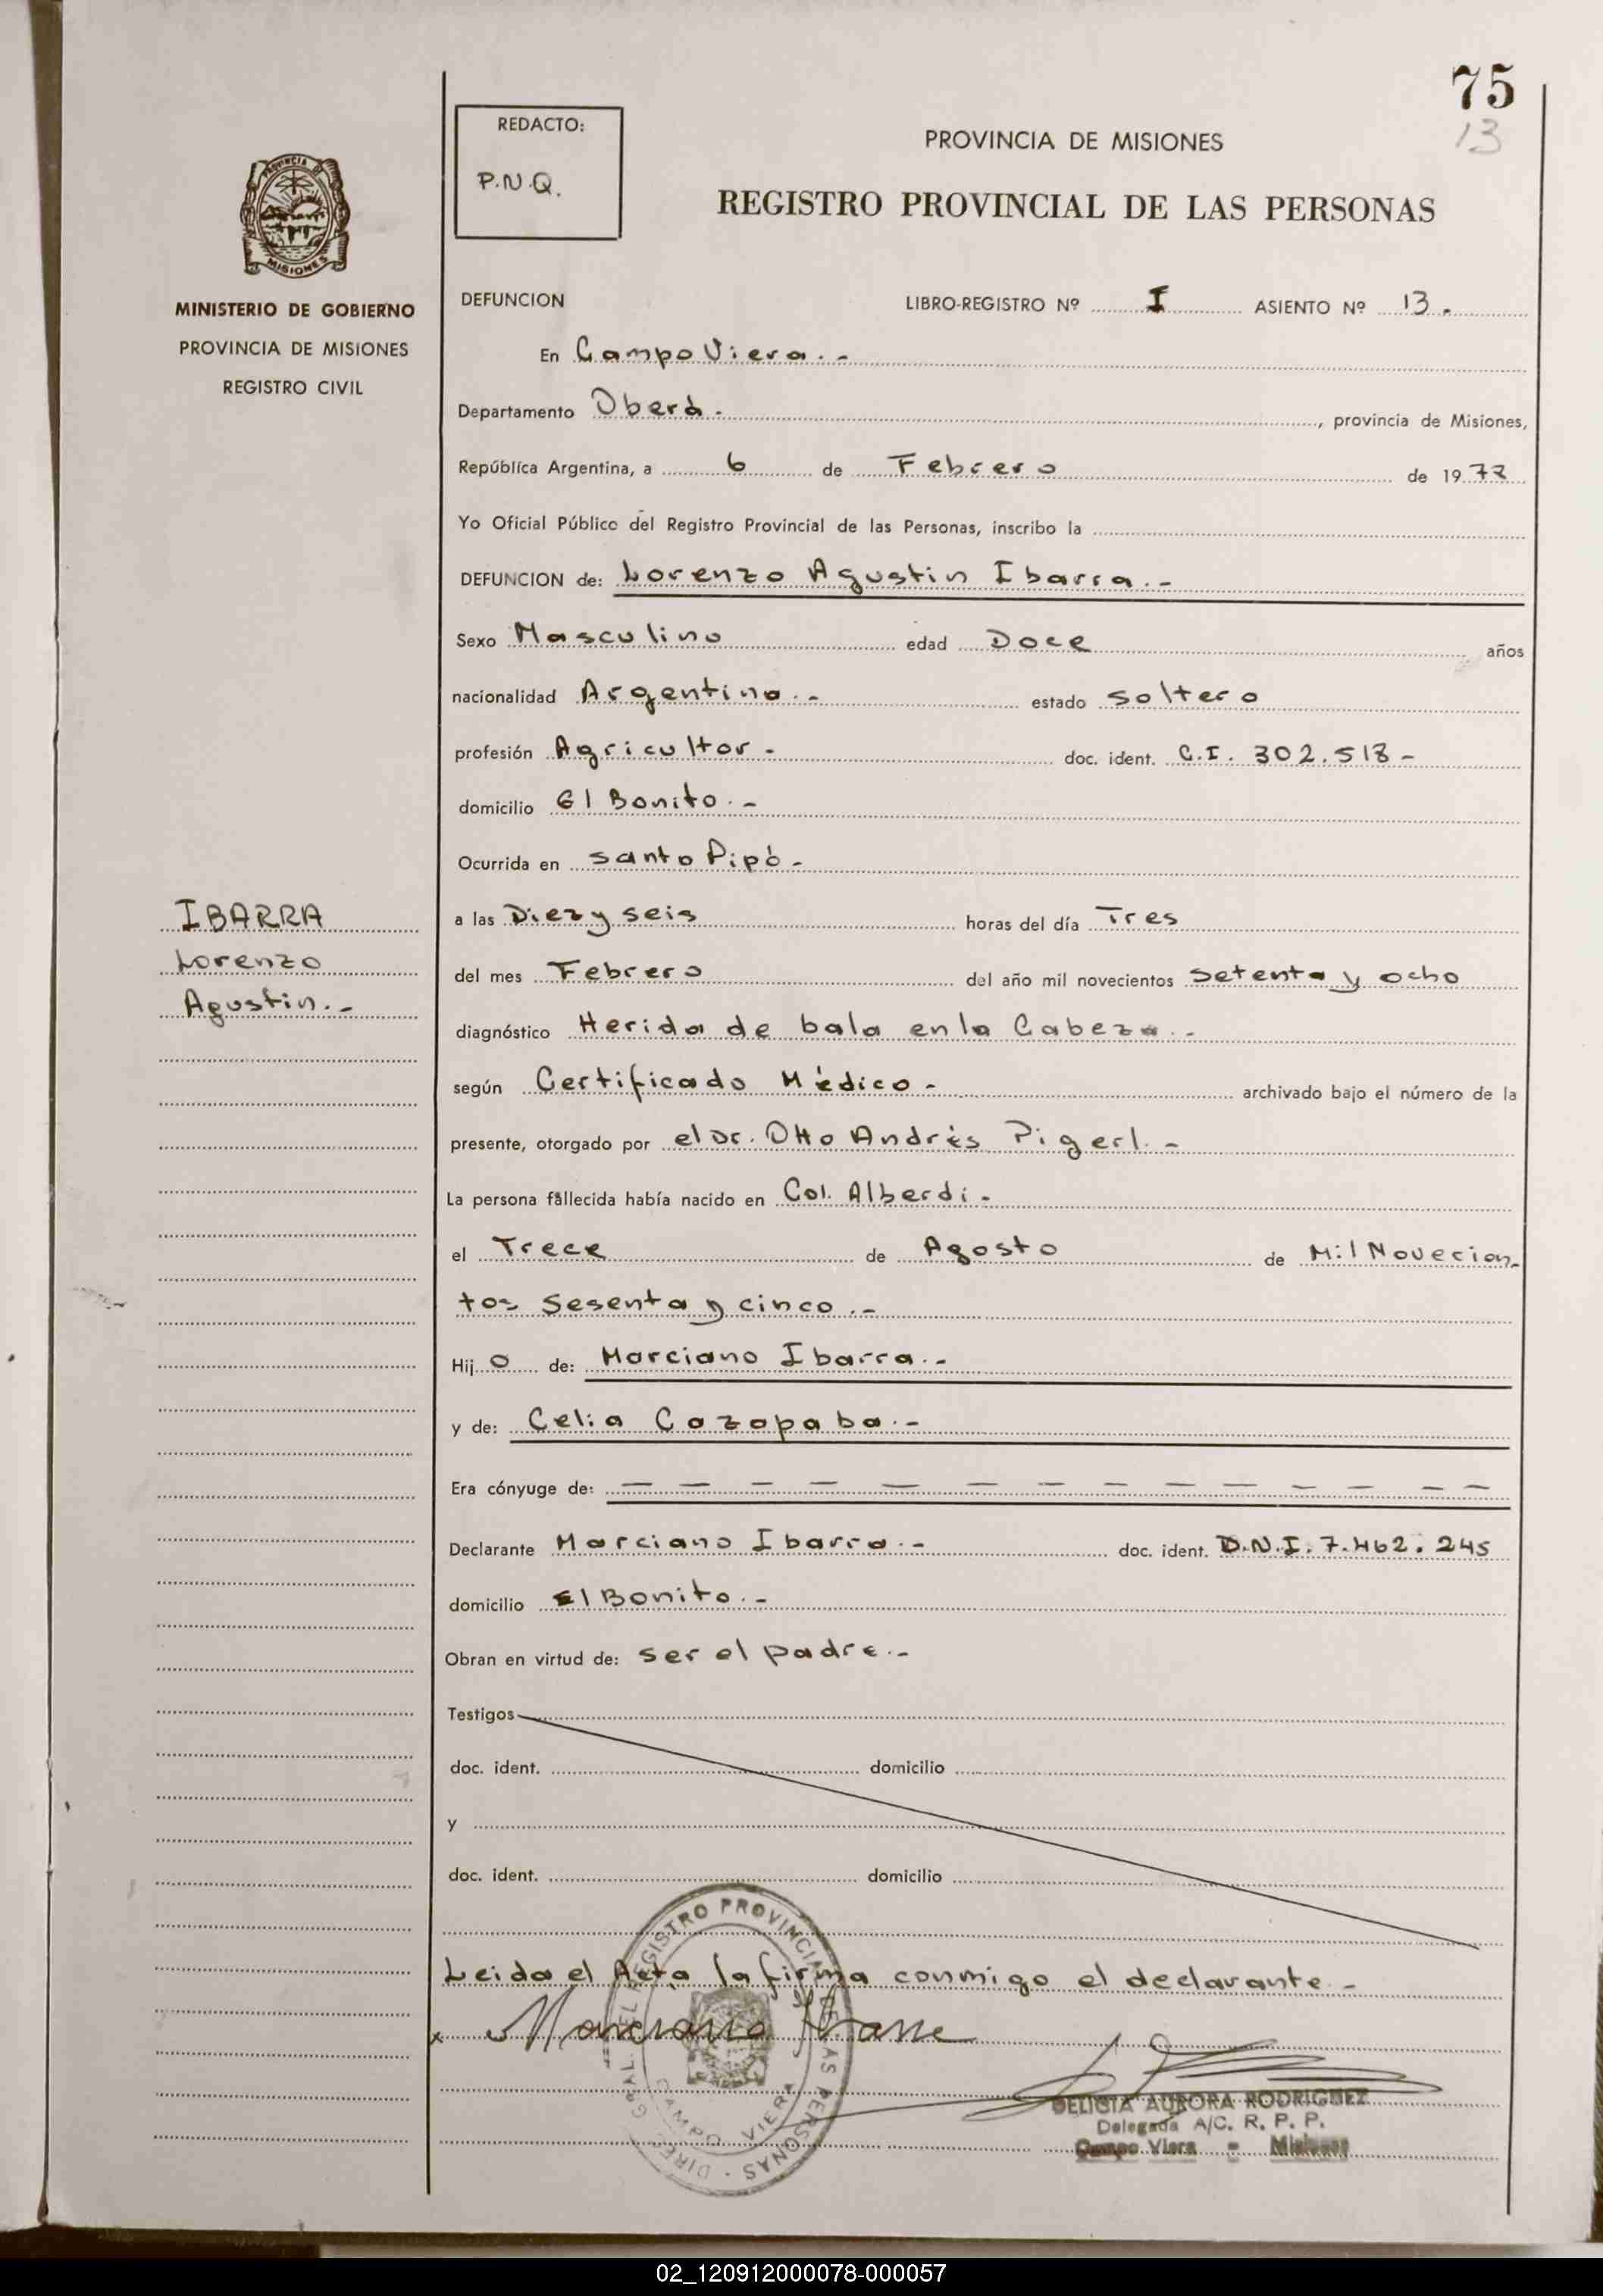 75
13
REDACTO:
P.N.Q.
PROVINCIA DE MISIONES
REGISTRO PROVINCIAL DE LAS PERSONAS
PROVINCIA DE
MISIONES
MINISTERIO DE GOBIERNO
PROVINCIA DE MISIONES
REGISTRO CIVIL
DEFUNCION LIBRO-REGISTRO Nº I ASIENTO Nº 13.
En Campo Viera.-
Departamento Oberá. , provincia de Misiones,
República Argentina, a 6 de Febrero de 19
Yo Oficial Público del Registro Provincial de las Personas, inscribo la
DEFUNCION de: Lorenzo Agustin Ibarra.-
Sexo Masculino edad Doce años
nacionalidad Argentina.- estado soltero
profesión Agricultor- doc. ident. C.I. 302.518-
domicilio El Bonito.-
Ocurrida en santo Pipó-
IBARRA
Lorenzo
Agustin.-
a las Diez y seis horas del día Tres
del mes Febrero del año mil novecientos setenta y ocho
diagnóstico Herida de bala en la Cabeza.-
según Certificado Médico- archivado bajo el número de la
presente, otorgado por el Dr. Otto Andrés Pigerl.-
La persona fallecida había nacido en Col. Alberdi-
el Trece de Agosto de Mil Novecien
tos sesenta y cinco.-
Hij o de: Marciano Ibarra.-
y de: Celia Cazapaba.-
Era cónyuge de: — — — — — — — — — — — — —
Declarante Marciano Ibarra.- doc. ident. D.N.I. 7.462.245
domicilio El Bonito.-
Obran en virtud de: ser el padre.-
Testigos
doc. ident. domicilio
y
doc. ident. domicilio
Leida el Acta la firma conmigo el declarante-
x Marciano Ibarra
DIREC. GRAL. DEL REGISTRO PROVINCIAL DE LAS PERSONAS
CAMPO VIERA
DELICIA AURORA RODRIGUEZ
Delegada A/C. R. P. P.
Campo Viera - Misiones
02_120912000078-000057